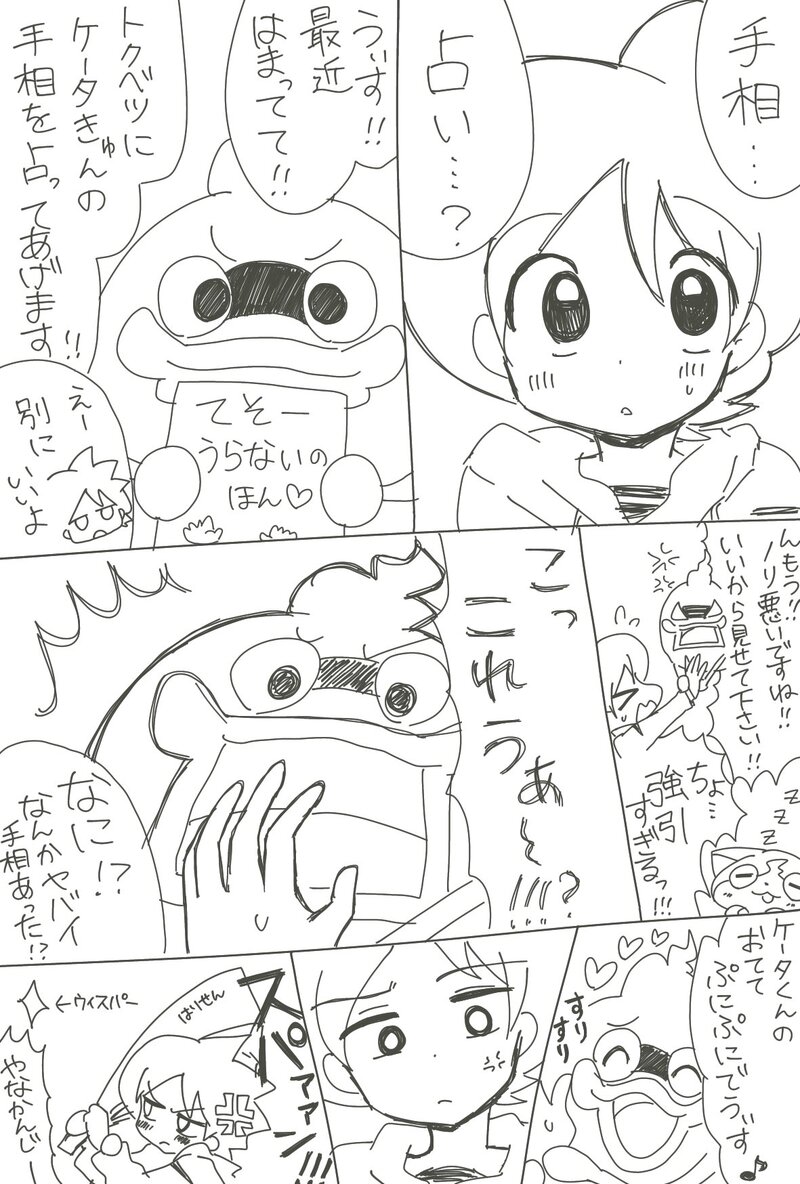 手相…
占い…?
うぃす!!
最近
はまってて!!
トクベツに
ケータきゅんの
手相を占ってあげます!!
てそー
うらないの
ほん♡
えー
別に
いいよ
んもう!!
ノリ悪いですね!!
いいから見せて下さい!!
ちょ…
強引
すぎるっ!!!
zzzz
こっ
これうぁ〜!!!?
なに!?
なんかヤバイ
手相あった!?
ケータくんの
おてて
ぷにぷにでうぃす♪
すり
すり
スパァァン!!!
はりせん
←ウィスパー
やなかんじー